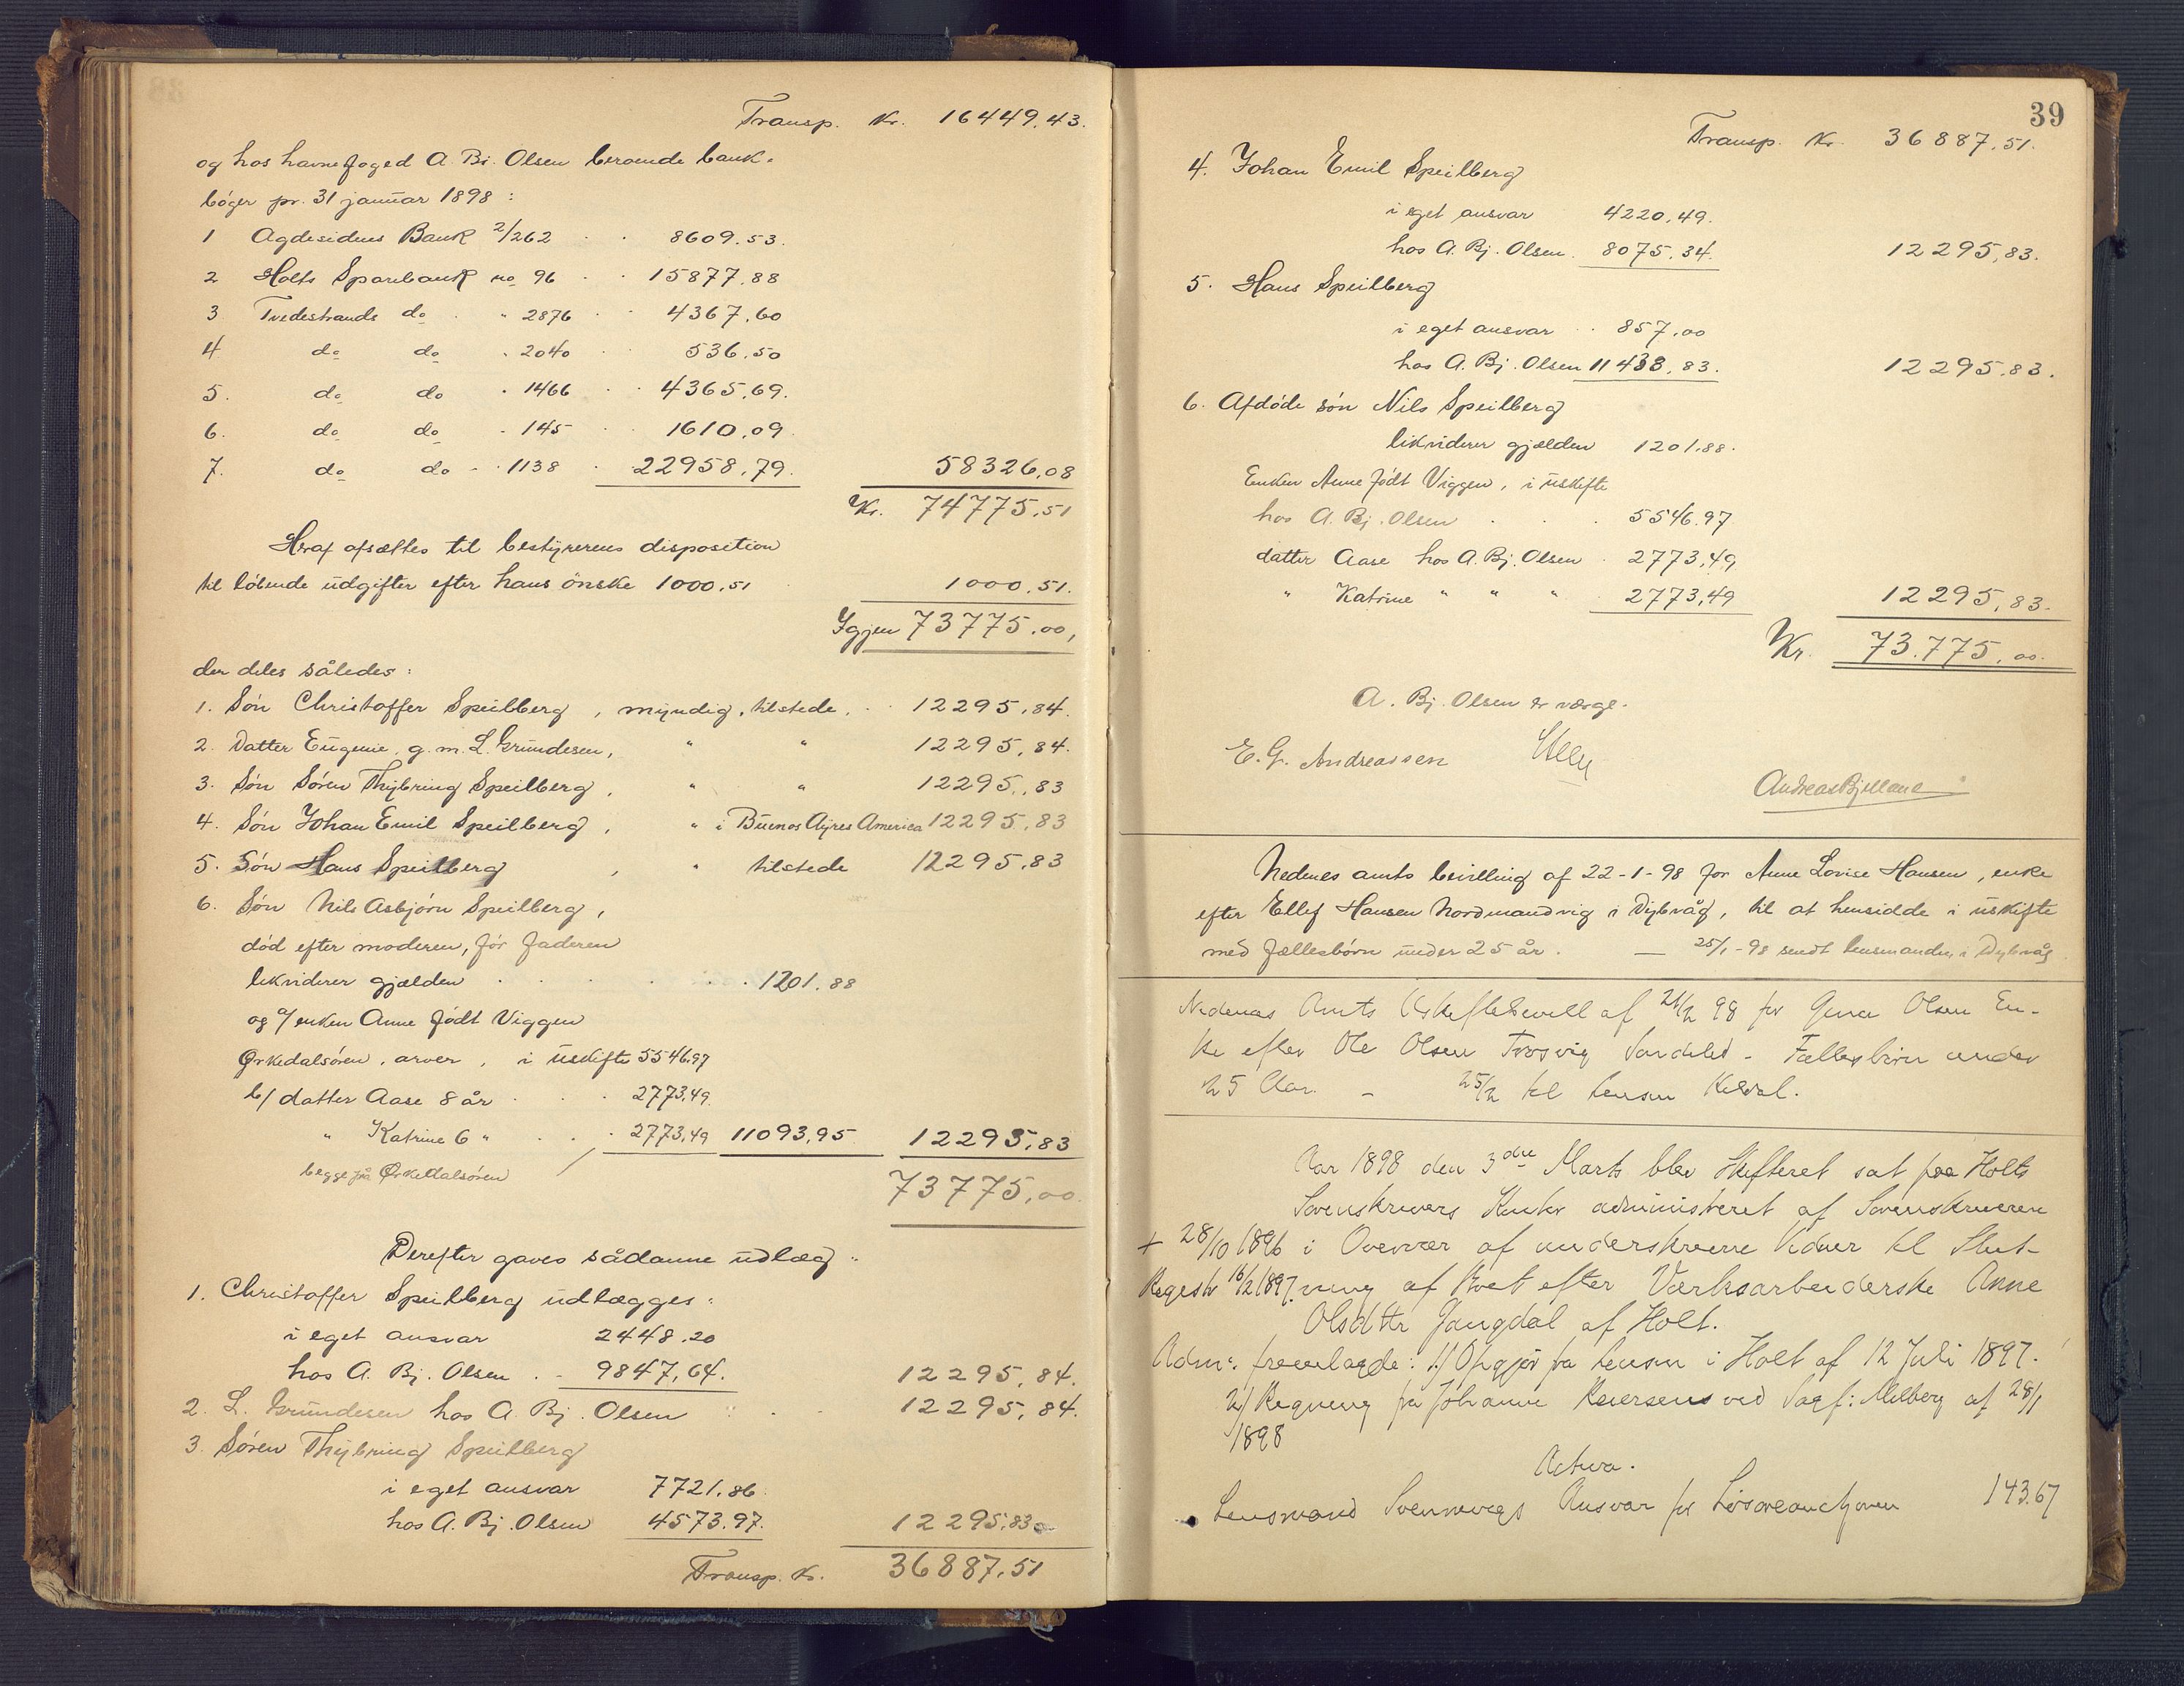 Transp. Kr. 16449.43.
og hos havnefoged A. Bj. Olsen beroende bank-
bøger pr. 31 januar 1898 :
1 Agdesidens Bank 2/262 8609.53.
2 Holts Sparebank no 96 15877.88
3 Tvedestrands do " 2876 4367.60
4 do do " 2040 536.50
5. do do " 1466 4365.69.
6. do do " 145 1610.09
7. do do " 1138 22958.79. 58326.08
Kr. 74775.51
Heraf afsættes til bestyrerens disposition
til løbende udgifter efter hans ønske 1000.51 1000.51.
Igjen 73775.00,
der deles således :
1. Søn Christoffer Speilberg, myndig, tilstede, 12295.84.
2. Datter Eugenie, g. m. L. Grundesen, " " 12295.84.
3. Søn Søren Thybring Speilberg, " " 12295.83
4. Søn Johan Emil Speilberg, " i Buenos Ayres America 12295.83
5. Søn Hans Speilberg, " tilstede 12295.83
6. Søn Nils Asbjørn Speilberg,
død efter moderen, før faderen
likviderer gjælden 1201.88
og a/ enken Anne født Viggen
Ørkedalsøren, arver, i uskifte 5546.97
b/ datter Aase 8 år 2773.49.
" Katrine 6 " 2773.49 11093.95 12295.83
begge på Ørkedalsøren
73775.00.
Derefter gaves sådanne udlæg :
1. Christoffer Speilberg udlægges :
i eget ansvar 2448.20
hos A. Bj. Olsen 9847.64. 12295.84.
2. L. Grundesen hos A. Bj. Olsen 12295.84.
3. Søren Thybring Speilberg
i eget ansvar 7721.86
hos A. Bj. Olsen 4573.97. 12295.83
Transp. Kr. 36887.51
39
Transp. Kr. 36887.51.
4. Johan Emil Speilberg
i eget ansvar 4220.49.
hos A. Bj. Olsen 8075.34. 12295.83.
5. Hans Speilberg
i eget ansvar 857.00
hos A. Bj. Olsen 11438.83. 12295.83.
6. Afdøde søn Nils Speilberg
likviderer gjælden 1201.88.
Enken Anne født Viggen, i uskifte
hos A. Bj. Olsen 5546.97
datter Aase hos A. Bj. Olsen 2773.49
" Katrine " " " 2773.49 12295.83.
Kr. 73.775.00.
A. Bj. Olsen er værge.
E. G. Andreassen
Andreas Bj
Nedenes amts bevilling af 22-1-98 for Anne Lovise Hansen, enke
efter Ellef Hansen Nordmandvig i Dybvåg, til at hensidde i uskifte
med fællesbørn under 25 år. — 25/1-98 sendt lensmanden i Dybvåg
Nedenæs Amts Uskiftebevill af 21/2 98 for Olsen En-
ke efter Ole Olsen Trosvig Søndeled - Fællesbørn under
25 Aar. - 25/2 til Lensm Kildal.
Aar 1898 den 3die Marts blev Skifteret sat paa Holts
Sorenskrivers Kontor administreret af Sorenskriveren
+ 28/10 1896 i Overvær af underskrevne Vidner til Slut-
Registr 16/2 1897. ning af Boet efter Værksarbeiderske Anne
Olsdttr Jangdal af Holt.
Adm: fremlagde: 1/ Opgjør fra Lensm i Holt af 12 Juli 1897.
2/ Regning fra Johanne Reiersens ved Sagf: Melberg af 28/1
1898
Activa.
Lensmand Svennevigs Ansvar for Løsøreauctionen 143.67